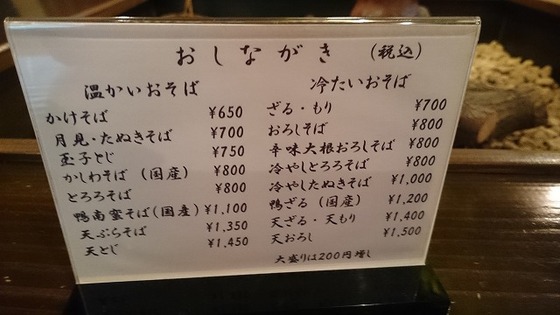 おしながき (税込)
温かいおそば
かけそば ¥650
月見・たぬきそば ¥700
玉子とじ ¥750
かしわそば (国産) ¥800
とろろそば ¥800
鴨南蛮そば(国産) ¥1,100
天ぷらそば ¥1,350
天とじ ¥1,450
冷たいおそば
ざる・もり ¥700
おろしそば ¥800
辛味大根おろしそば ¥800
冷やしとろろそば ¥800
冷やしたぬきそば ¥1,000
鴨ざる (国産) ¥1,200
天ざる・天もり ¥1,400
天おろし ¥1,500
大盛りは200円増し